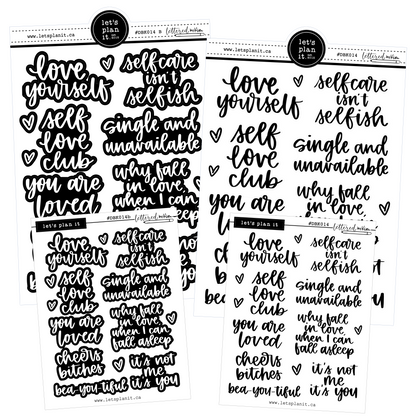 let's
plan
it.
www.letsplanit.ca
#DBK014 B
lettered
love
yourself
selfcare
isn't
selfish
self
love
club
single and
unavailable
you are
loved
why fall
in love
when I can
let's
plan
it.
www.letsplanit.ca
#DBK014
lettered
love
yourself
selfcare
isn't
selfish
self
love
club
single and
unavailable
you are
loved
why fall
in love,
let's plan it
#DBK014B
lettered
love
yourself
selfcare
isn't
selfish
self
love
club
single and
unavailable
you are
loved
why fall
in love,
when I can
fall asleep
cheers
bitches
it's not
me
it's you
bea-you-tiful
www.letsplanit.ca
let's plan it
#DBK014
lettered
love
yourself
selfcare
isn't
selfish
self
love
club
single and
unavailable
you are
loved
why fall
in love,
when I can
fall asleep
cheers
bitches
it's not
me
it's you
bea-you-tiful
www.letsplanit.ca